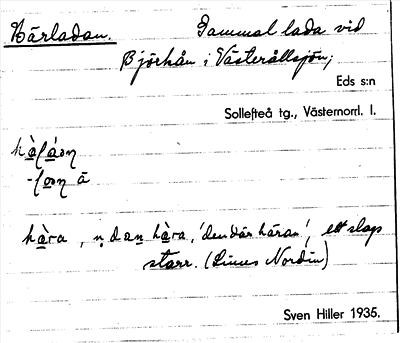 Härladan. Gammal lada vid
Björkån i Västerållsjön;
Eds s:n
Sollefteå tg., Västernorrl. l.
hàlá̱ɷŋ
-lɷŋ ā
hà̱ra, n̥ dan hà̱ra, 'den där häran', ett slags
starr. (Linus Nordin)
Sven Hiller 1935.